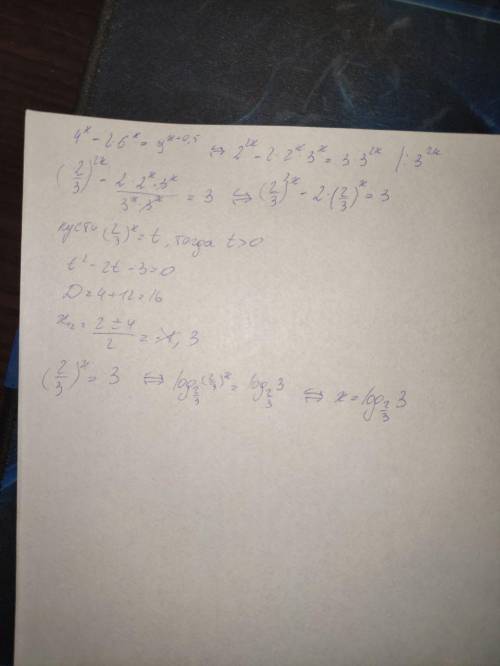 4^x - 2·6^x = 9^{x+0,5} ⇔ 2^{2x} - 2·2^x·3^x = 3·3^{2x} |: 3^{2x}
(2/3)^{2x} - (2·2^x·3^x)/(3^x·3^x) = 3 ⇔ (2/3)^{2x} - 2·(2/3)^x = 3
пусть (2/3)^x = t, тогда t>0
t² - 2t - 3 = 0
D = 4+12 = 16
x_{1,2} = (2±4)/2 = -1, 3
(2/3)^x = 3 ⇔ log_{2/3}(2/3)^x = log_{2/3}3 ⇔ x = log_{2/3}3